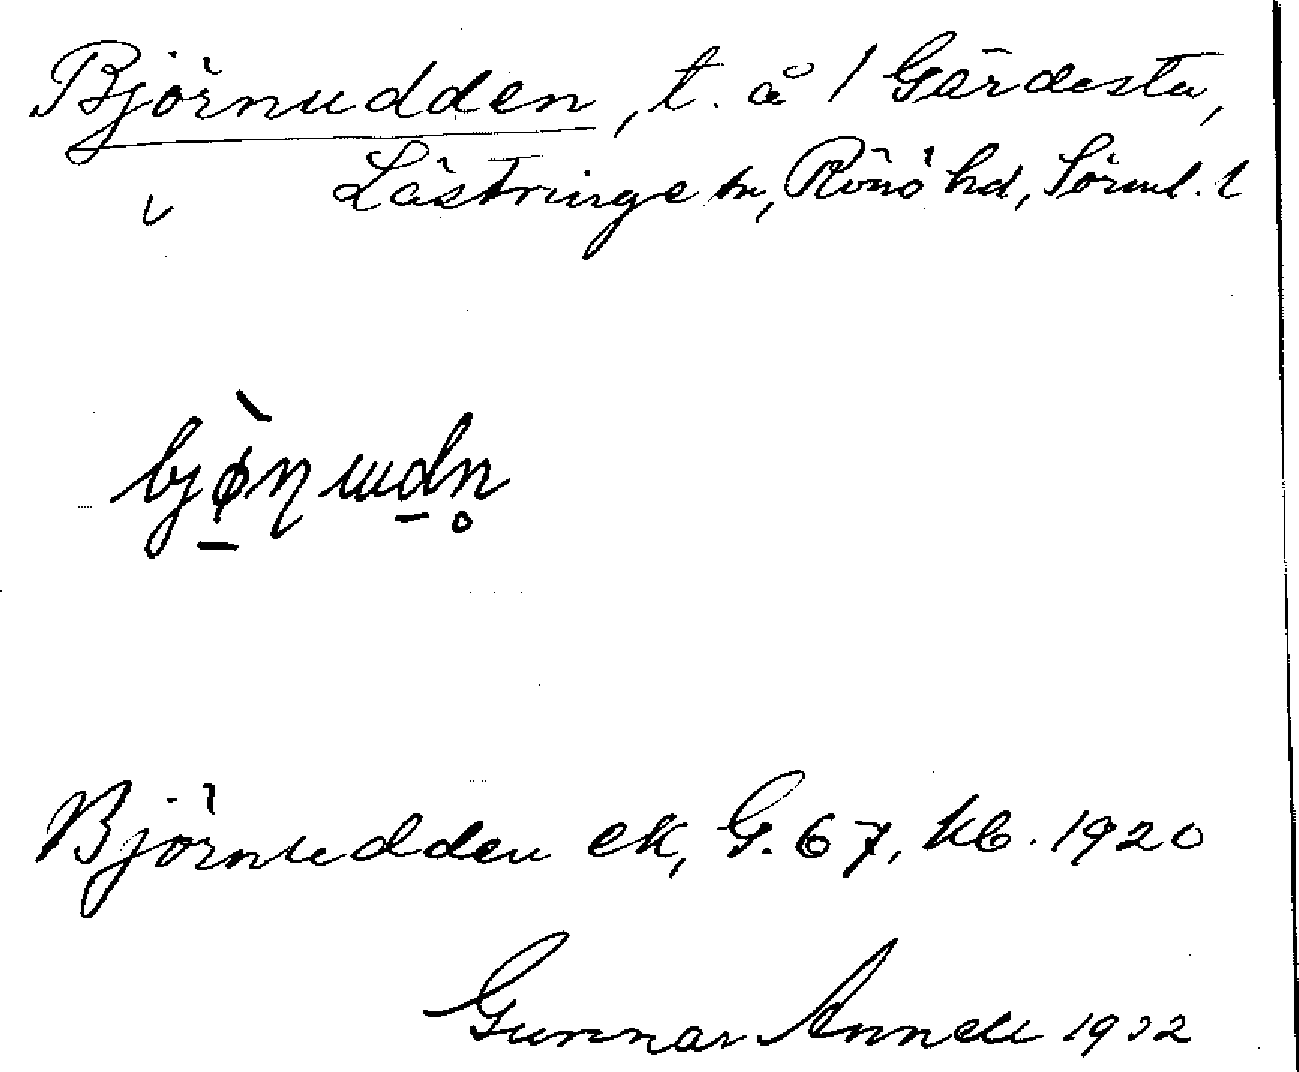 Björnudden, t. å 1 Gärdesta,
Lästringe sn, Rönö hd, Sörml. l
Björnudden ek, G. 67, kb. 1920
Gunnar Annell 1932